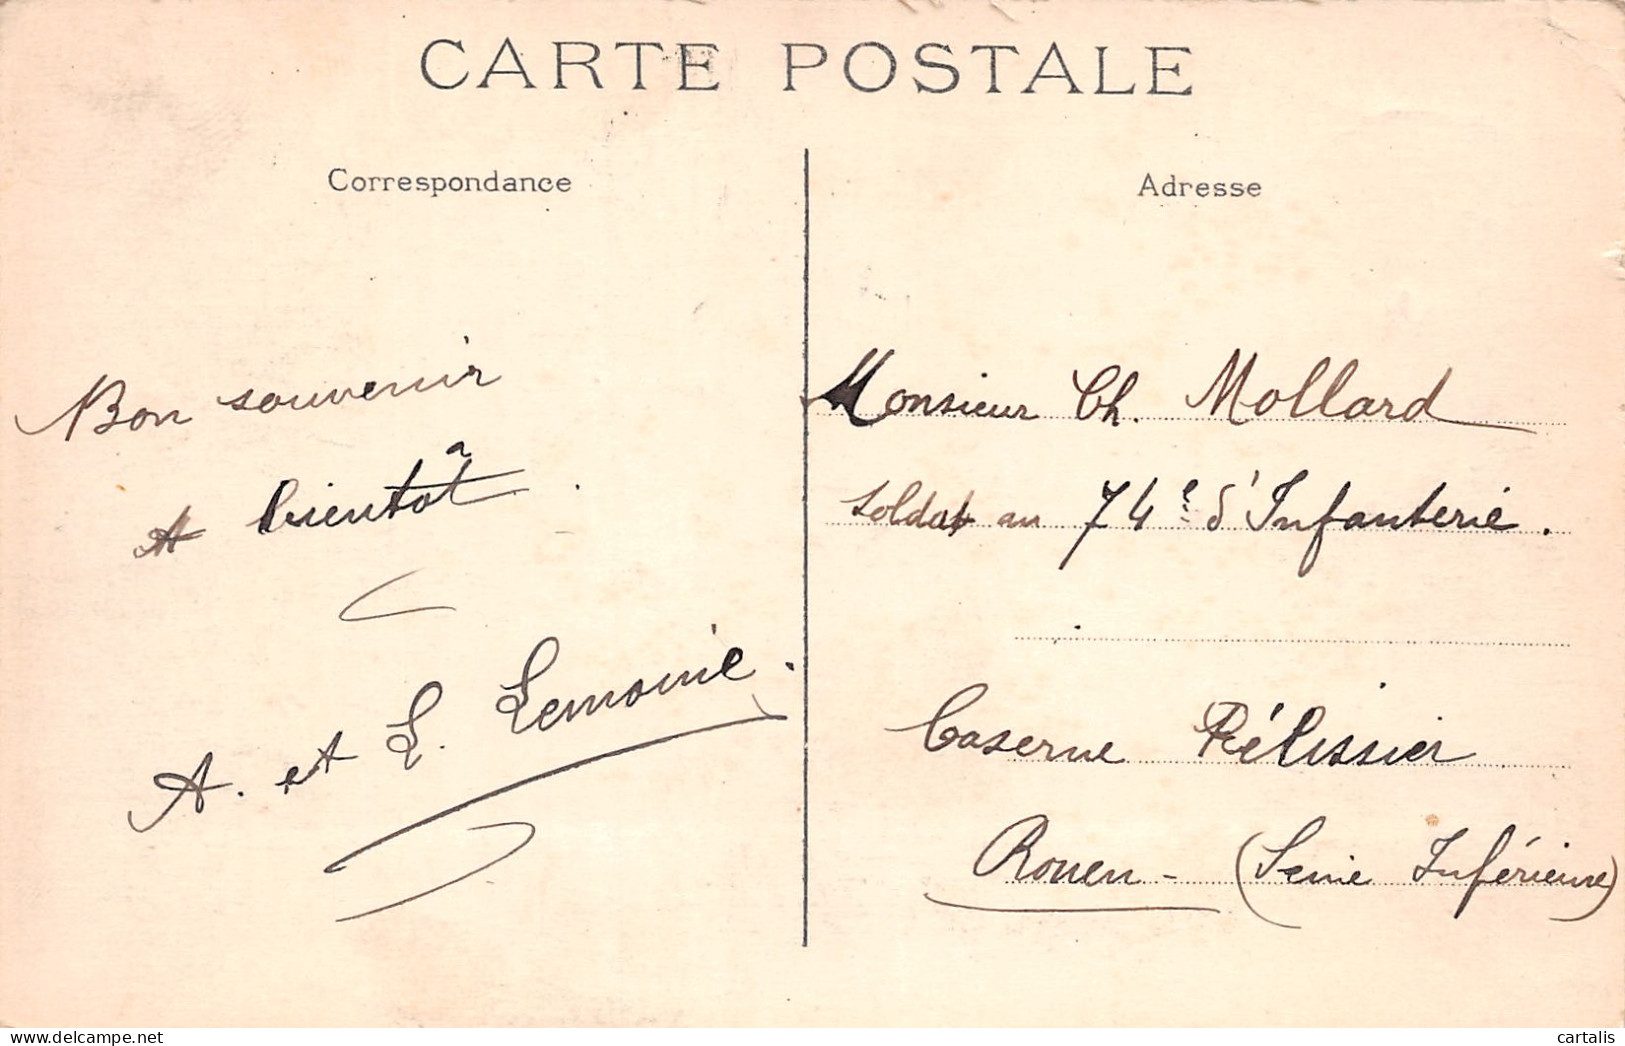 CARTE POSTALE
Correspondance
Bon souvenir
A bientôt.
A. et L. Lemoine.
Adresse
Monsieur Ch. Mollard
Soldat au 74e d'Infanterie.
Caserne Pélissier
Rouen - (Seine Inférieure)
delcampe.net
cartalis